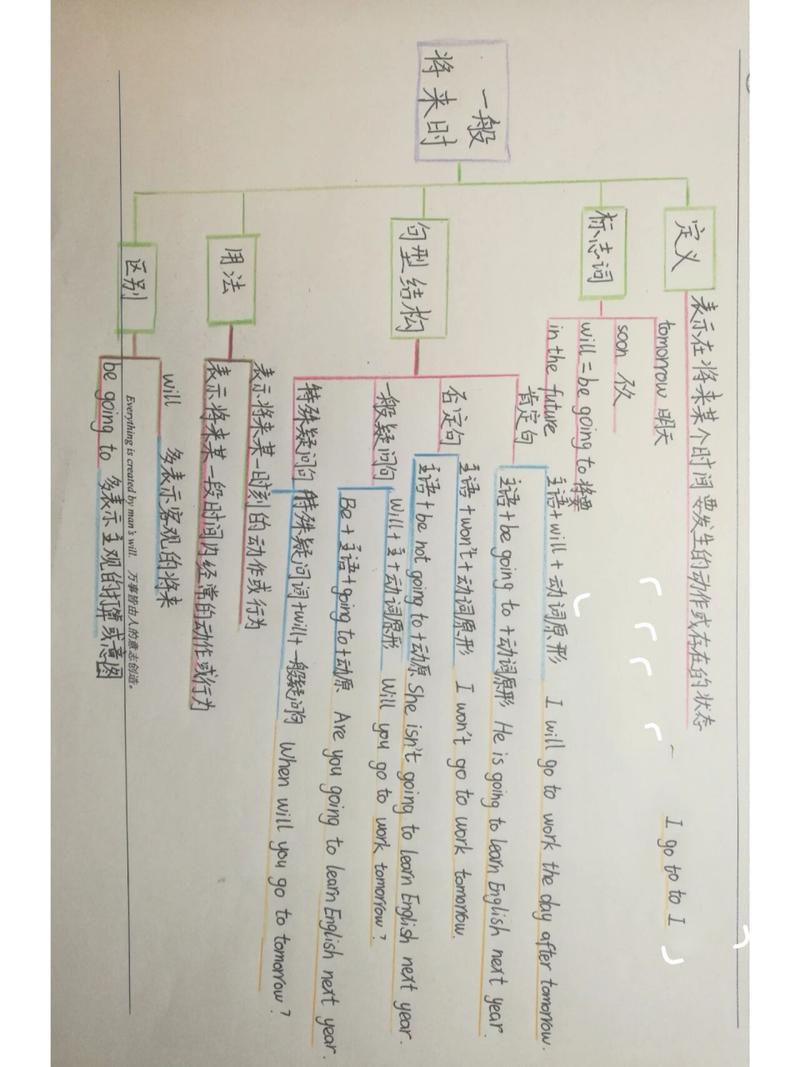 一般
将来时
定义
表示在将来某个时间要发生的动作或存在的状态
标志词
tomorrow 明天
soon 不久
will = be going to 将要
in the future
句型结构
肯定句
主语+will+动词原形 I will go to work the day after tomorrow.
主语+be going to +动词原形 He is going to learn English next year.
否定句
主语+won't+动词原形 I won't go to work tomorrow.
主语+be not going to +动原 She isn't going to learn English next year.
一般疑问句
Will+主+动词原形 Will you go to work tomorrow?
Be+主语+going to+动原 Are you going to learn English next year.
特殊疑问句
特殊疑问词+will+一般疑问句 When will you go to tomorrow?
用法
表示将来某一时刻的动作或行为
表示将来某一段时间内经常的动作或行为
区别
will 多表示客观的将来
be going to 多表示主观的打算或意图
Everything is created by man's will. 万事皆由人的意志创造。
I go to to I